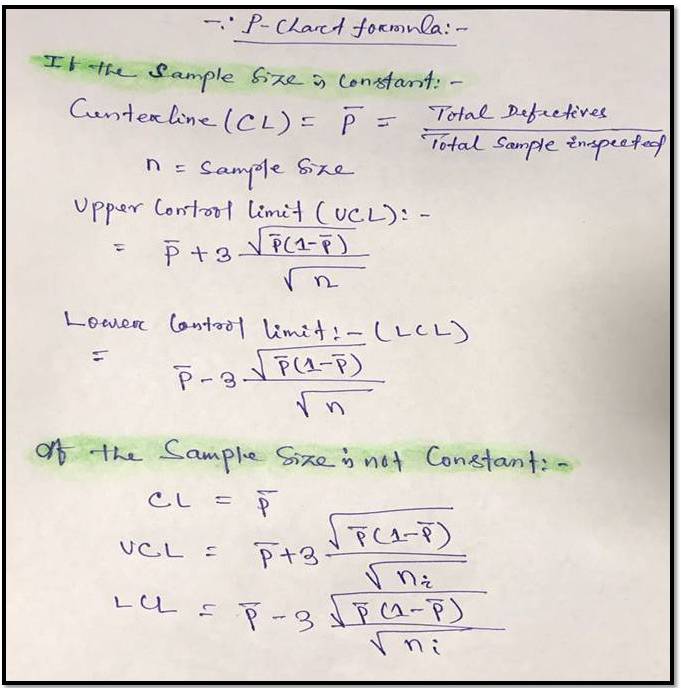 -: P-Chart formula:-
If the Sample Size is Constant:-
Centerline (CL) = p̄ = Total Defectives / Total Sample inspected
n = Sample Size
Upper Control limit (UCL):-
= p̄ + 3 √p̄(1-p̄) / √n
Lower Control limit:- (LCL)
= p̄ - 3 √p̄(1-p̄) / √n
If the Sample Size is not Constant:-
CL = p̄
UCL = p̄ + 3 √p̄(1-p̄) / √ni
LCL = p̄ - 3 √p̄(1-p̄) / √ni